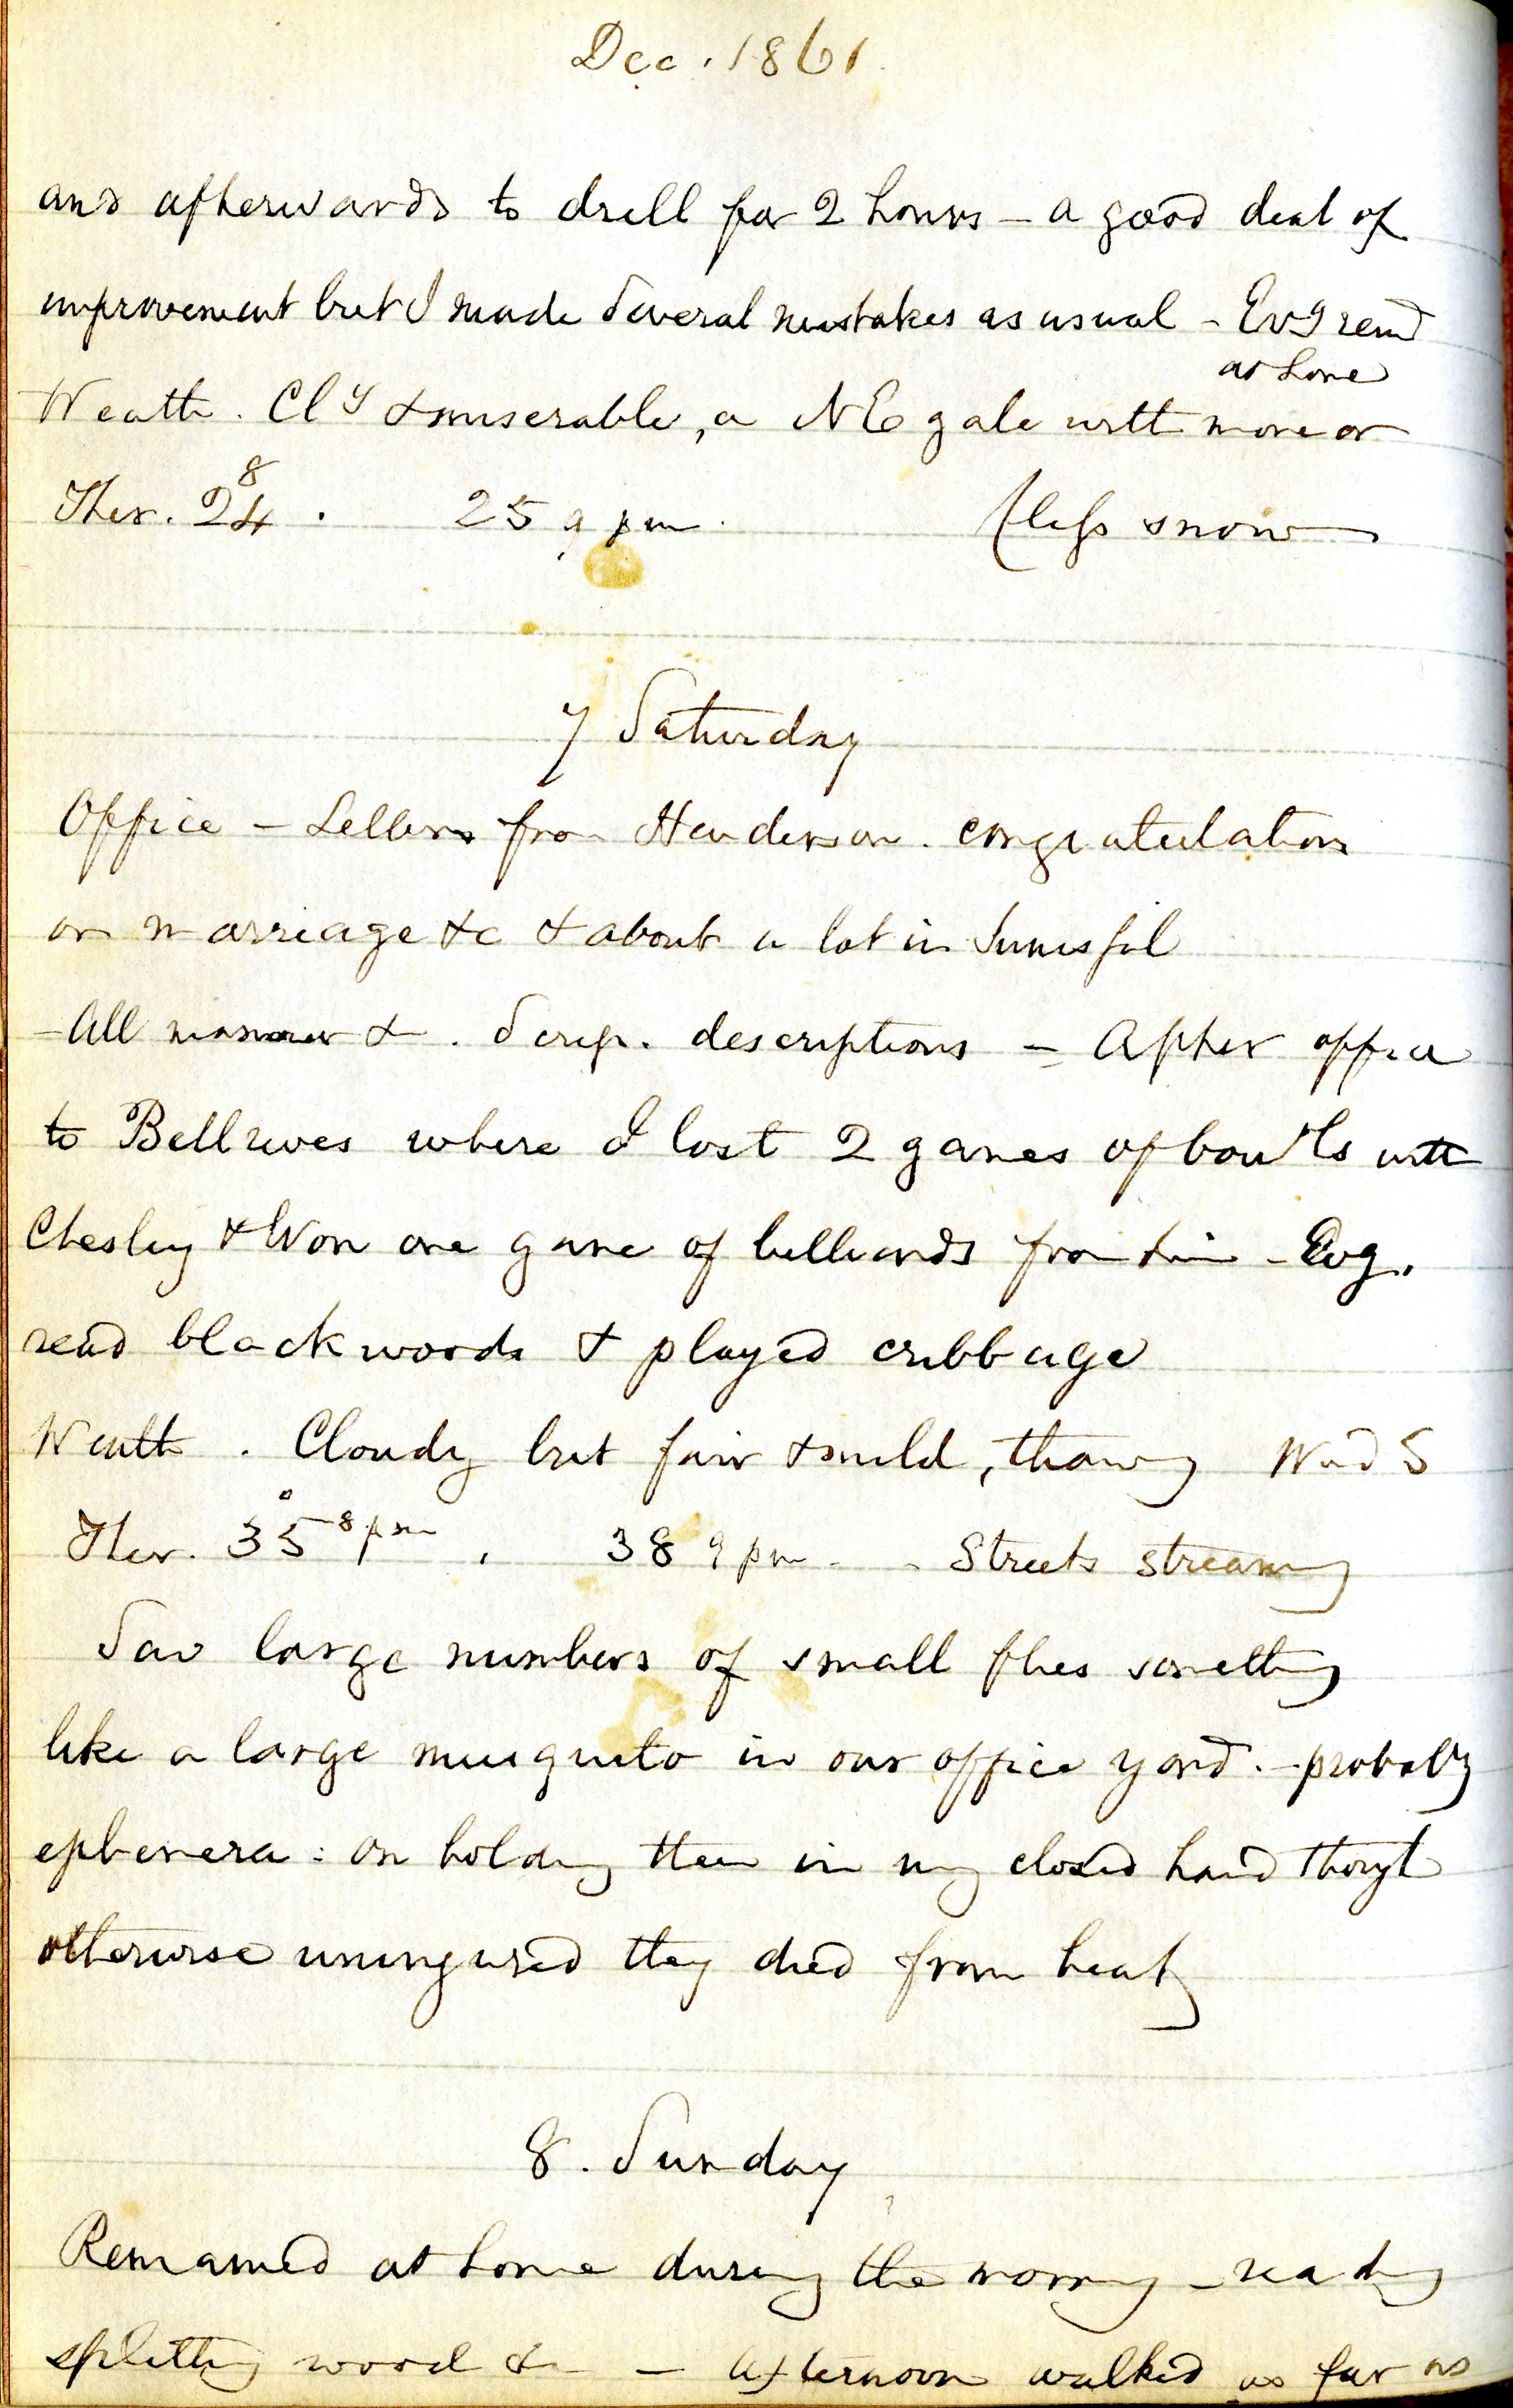 Dec. 1861.
and afterwards to drill for 2 hours - a good deal of
improvement but I made several mistakes as usual - Evg read
at home
Weath. Cly & miserable, a NE gale with more or
Ther. 24 8 . 25 9 pm. (less snow
7 Saturday
Office - Letters from Henderson. congratulations
on marriage &c & about a lot in Innisfil
- All & . Scrip. descriptions - After office
to Bellevues where I lost 2 games of bowls with
Chesley & Won one game of billiards from him - Evg.
read blackwoods & played cribbage
Weath. Cloudy but fair & mild, thawing Wind S
Ther. 35° 8 pm, 38 9 pm - . Streets streaming
Saw large numbers of small flies something
like a large musquito in our office yard. - probably
ephemera : on holding them in my closed hand thought
otherwise uningured they died from heat
8. Sunday
Remained at home during the morning - reading
splitting wood & - afternoon walked as far as